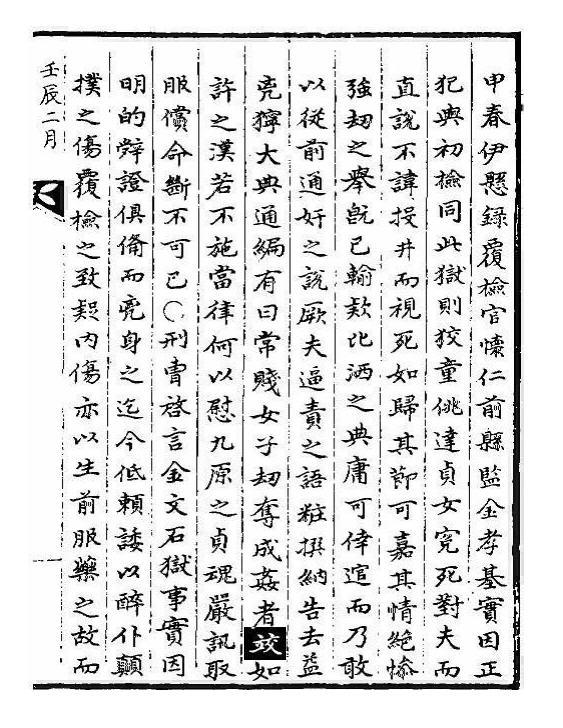 申春伊懸錄覆檢官懷仁前縣監金孝基實因正
犯與初檢同此獄則狡童佻達貞女寃死對夫而
直說不諱投井而視死如歸其節可嘉其情絶慘
強刼之擧旣已輸欵比洒之典庸可倖逭而乃敢
以從前通奸之說厥夫逼責之語粧撰納告去益
兇獰大典通編有曰常賤女子刼奪成姦者竢如
許之漢若不施當律何以慰九原之貞魂嚴訊取
服償命斷不可已〇刑曹啓言金文石獄事實因
明的辤證俱備而兇身之迄今低賴諉以醉仆顚
撲之傷覆檢之致疑內傷亦以生前服藥之故而
壬辰二月